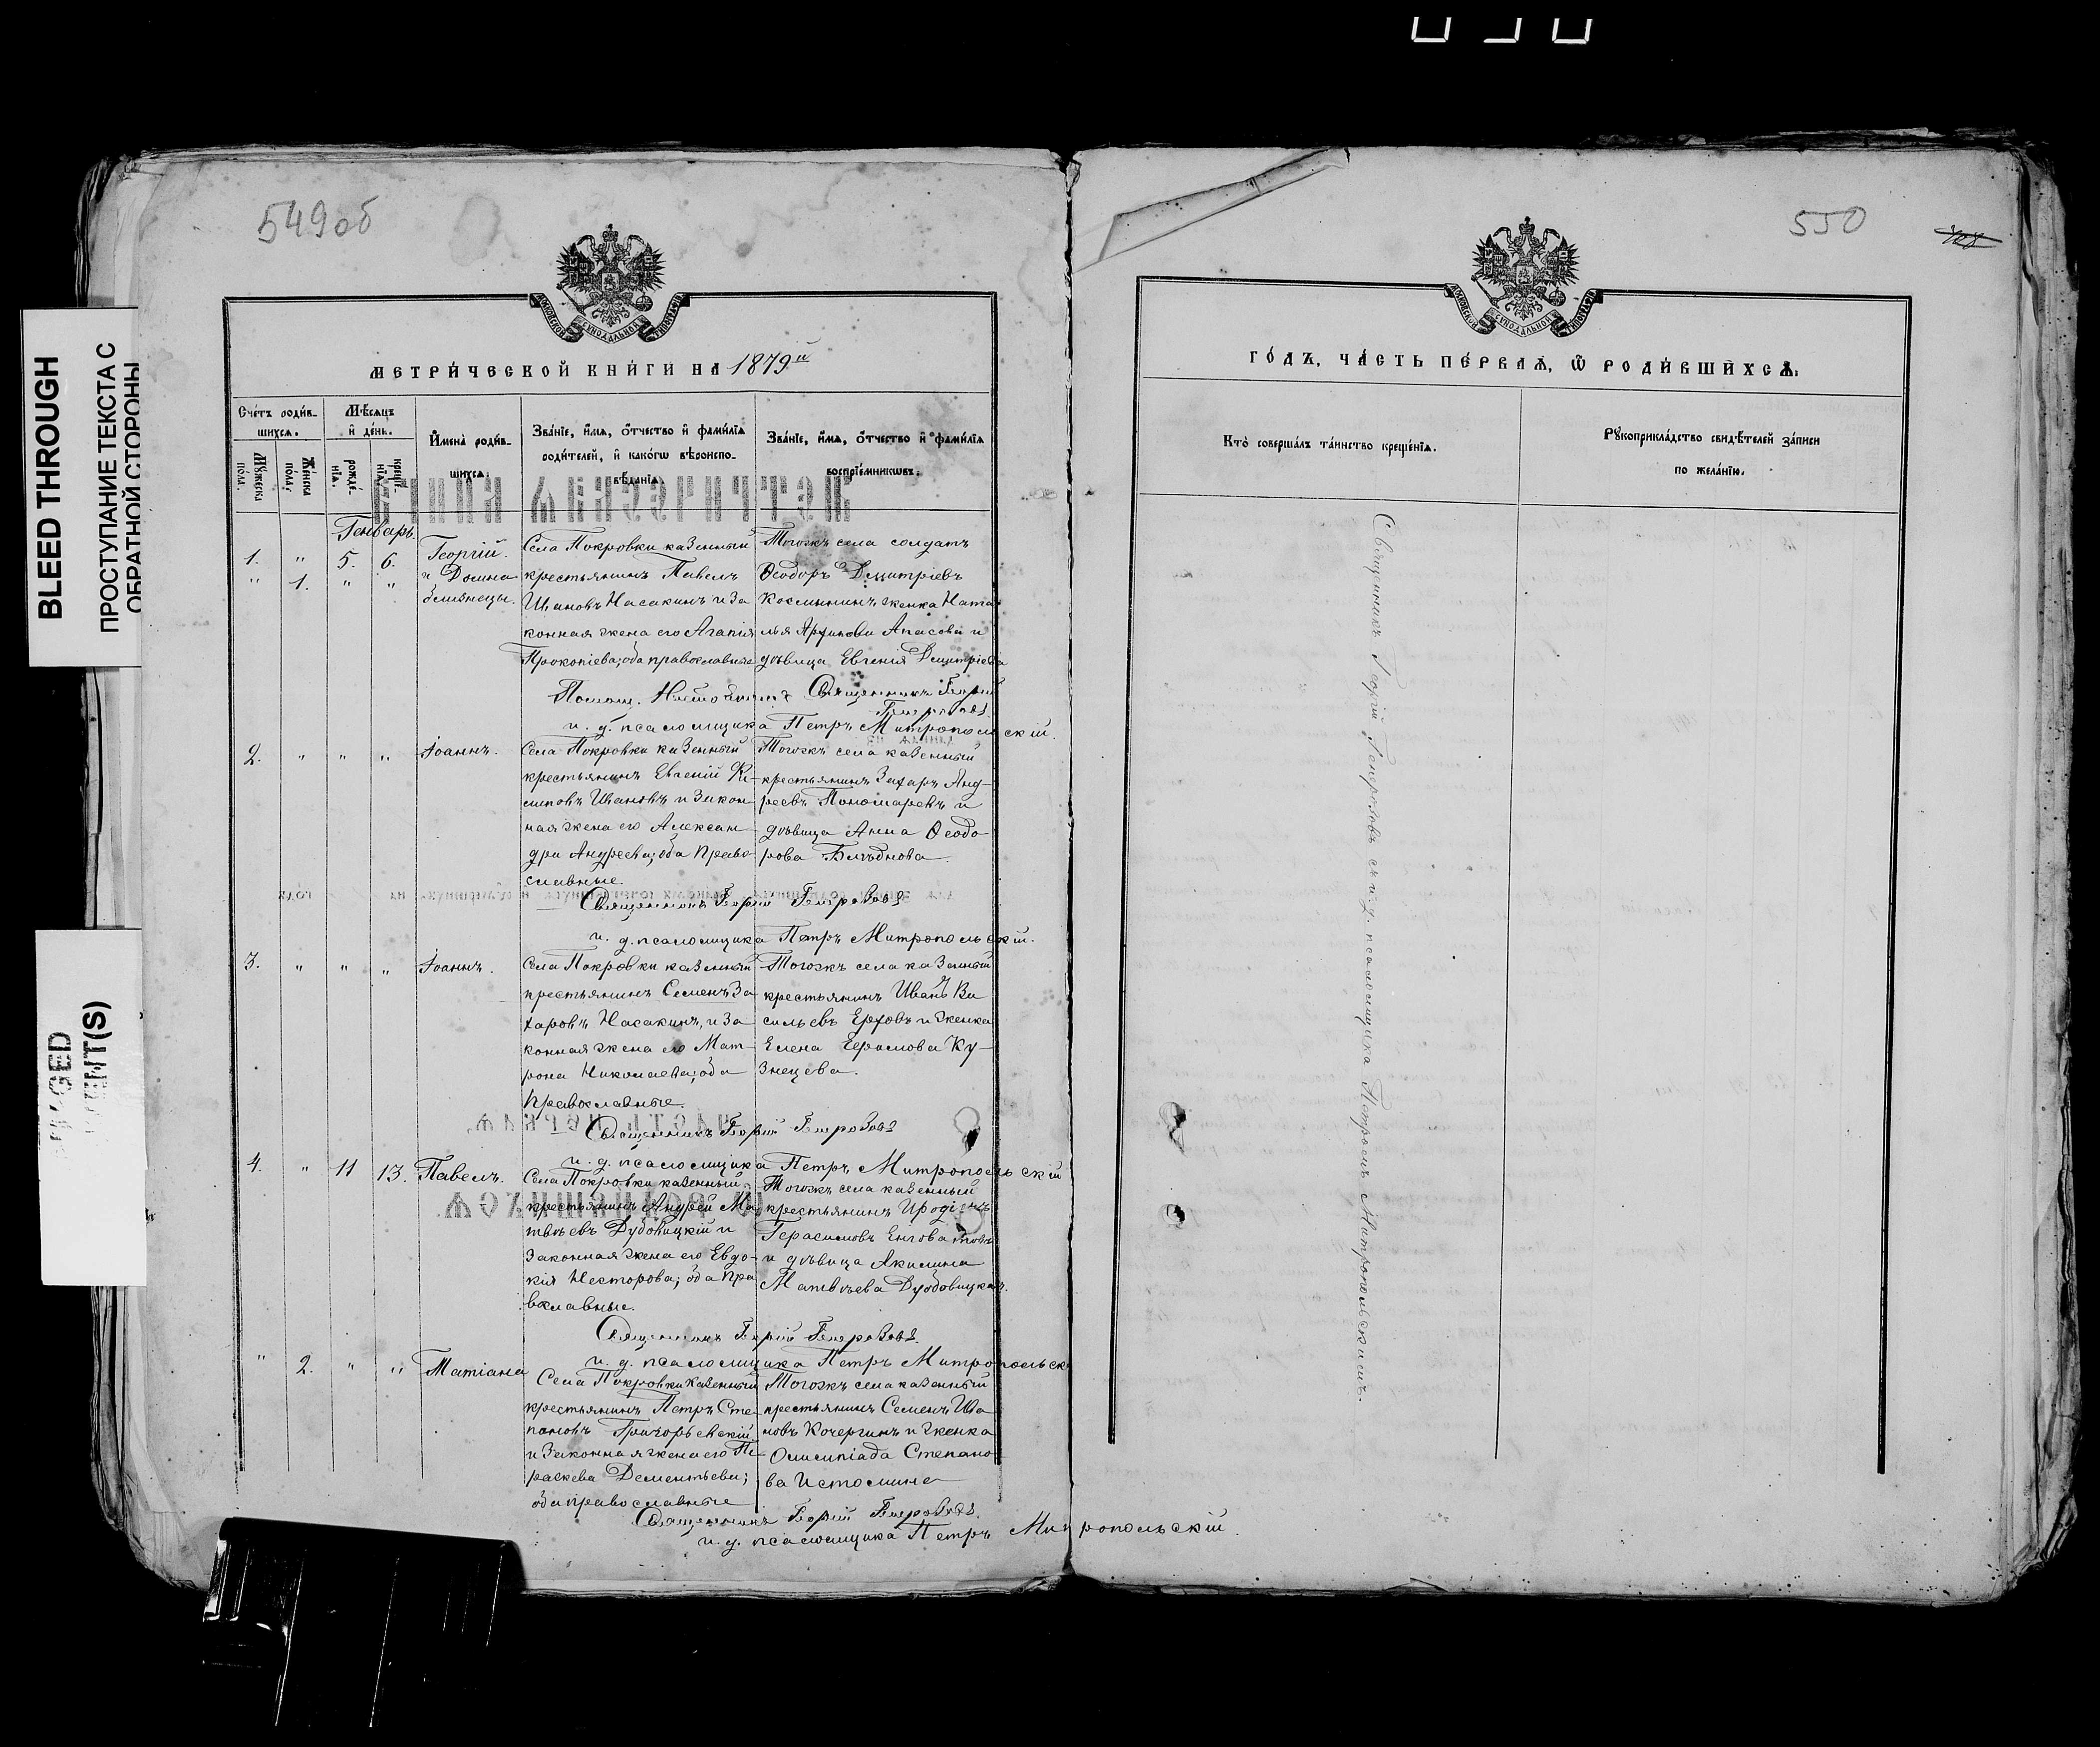 549об
МЕТРИ́ЧЕСКОЙ КНИ́ГИ НА 1879й
Сче́тъ роди́в-
шихсѧ.
Мѣ́сѧцъ
и҆ де́нь.
Мꙋ́жеска по́ла.
Же́нска по́ла.
рожде́-
нїѧ.
креще́-
нїѧ.
И҆мена̀ роди́в-
шихсѧ.
Зва́нїе, и҆́мѧ, ѻ҆́тчество и҆ фами́лїѧ
роди́телей, и҆ како́гѡ вѣроиспо-
вѣ́данїѧ.
Зва́нїе, и҆́мѧ, ѻ҆́тчество и҆ фами́лїѧ
воспрїе́мникѡвъ.
Генварь.
1. " 5. 6. Георгій.
" 1. " " и Домна
близнецы.
Села Покровки казенный
крестьянинъ Павелъ
Ивановъ Насакинъ и за
конная жена его Агапія
Прокопіева; оба православные
Тогожъ села солдатъ
Ѳеодоръ Дмитріевъ
Косминин, женка Ната
лья Архипова Апасова и
дѣвица Евгенія Дмитріева
Священникъ Георгій
Генерозовъ
и. д. псаломщика Петръ Митропольскій.
2. " " " Іоаннъ.
Села Покровки казенный
крестьянинъ Евгеній Фи-
липовъ Ивановъ и закон
ная жена его Алексан
дра Андреева; оба право-
славные.
Тогожъ села казенный
крестьянинъ Захаръ Анд-
реевъ Пономаревъ и
дѣвица Анна Ѳеодо
рова
Священникъ Георгій Генерозовъ
и. д. псаломщика Петръ Митропольскій.
3. " " " Іоаннъ.
Села Покровки казенный
крестьянинъ Семенъ За
харовъ Насакинъ, и за
конная жена его Мат-
рона Николаева; оба
православные.
Тогожъ села казенный
крестьянинъ Иванъ Ва
сильевъ Ерховъ и женка
Елена Ку-
знецова.
Священникъ Георгій Генерозовъ
и. д. псаломщика Петръ Митропольскій
4. " 11 13. Павелъ.
Села Покровки казенный
крестьянинъ Андрей Ма
твѣевъ Дубовицкій и
законная жена его Евдо-
кія Несторова; оба пра
вославные.
Тогожъ села казенный
крестьянинъ Иродіонъ
Герасимовъ
и дѣвица Акилина
Матвѣева Дубовицкая.
Священникъ Георгій Генерозовъ.
и. д. псаломщика Петръ Митропольск
" 2. " " Татіана
Села Покровки казенный
крестьянинъ Петръ Сте-
пановъ Григорьевскій
и законная жена его Па-
раскева Дементьева;
оба православные
Тогожъ села казенный
крестьянинъ Семенъ Ива
новъ Кочергинъ и женка
Олимпіада Степано
ва Истомина
Священникъ Георгій Генерозовъ.
и. д. псаломщика Петръ Митропольскій.
550
ГО́ДЪ, ЧА́СТЬ ПЕ́РВАѦ, Ѿ РОДИ́ВШИХСѦ.
Кто̀ соверша́лъ та́инство креще́нїѧ.
Рꙋкоприкла́дство свидѣ́телей за́писи
по жела́нїю.
Священникъ Георгій Генерозовъ съ и. д. псаломщика Петромъ Митропольскимъ.
BLEED THROUGH
ПРОСТУПАНИЕ ТЕКСТА С
ОБРАТНОЙ СТОРОНЫ